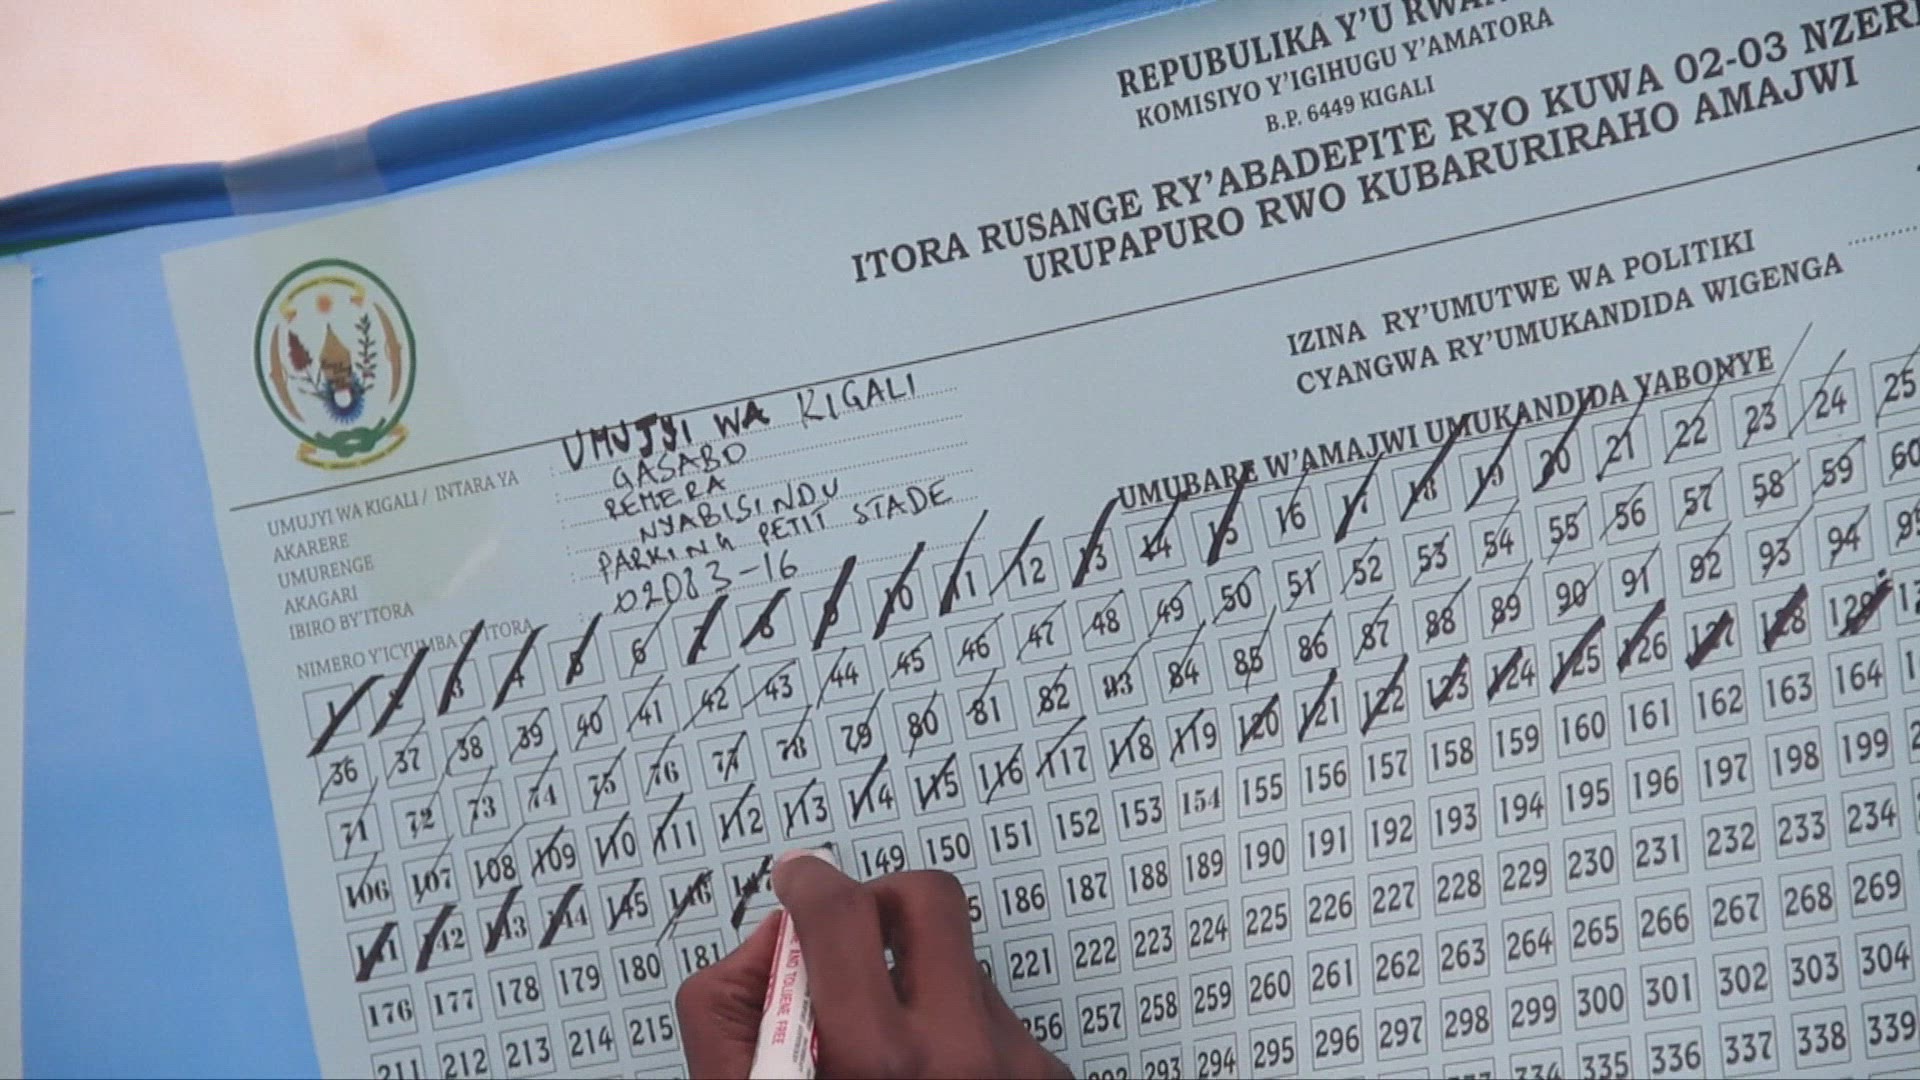 REPUBULIKA Y'U
KOMISIYO Y'IGIHUGU Y'AMATORA
B.P. 6449 KIGALI
ITORA RUSANGE RY'ABADEPITE RYO KUWA 02-03
URUPAPURO RWO KUBARURIRAHO AMAJWI
IZINA RY'UMUTWE WA POLITIKI
CYANGWA RY'UMUKANDIDA WIGENGA
UMUJYI WA KIGALI / INTARA YA : UMUJYI WA KIGALI
AKARERE : GASABO
UMURENGE : REMERA
AKAGARI : NYABISINDU
IBIRO BY'ITORA : PARKING PETIT STADE
NIMERO Y'ICYUMBA CY'ITORA : 02083-16
UMUBARE W'AMAJWI UMUKANDIDA YABONYE
1 2 3 4 5 6 7 8 9 10 11 12 13 14 15 16 17 18 19 20 21 22 23 24 25
36 37 38 39 40 41 42 43 44 45 46 47 48 49 50 51 52 53 54 55 56 57 58 59 60
71 72 73 74 75 76 77 78 79 80 81 82 83 84 85 86 87 88 89 90 91 92 93 94
106 107 108 109 110 111 112 113 114 115 116 117 118 119 120 121 122 123 124 125 126 127 128 129
141 142 143 144 145 146 147 149 150 151 152 153 154 155 156 157 158 159 160 161 162 163 164
176 177 178 179 180 181 186 187 188 189 190 191 192 193 194 195 196 197 198 199
211 212 213 214 215 221 222 223 224 225 226 227 228 229 230 231 232 233 234
256 257 258 259 260 261 262 263 264 265 266 267 268 269
293 294 295 296 297 298 299 300 301 302 303 304
334 335 336 337 338 339
AND TOLUENE FREE